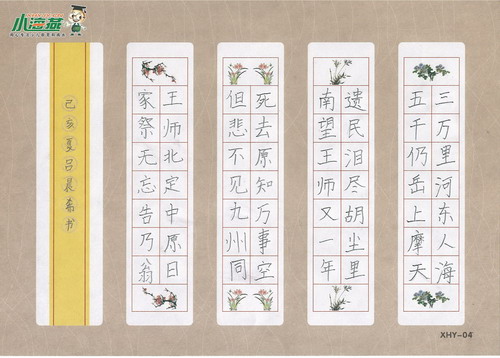 三万里河东人海
五千仍岳上摩天
遗民泪尽胡尘里
南望王师又一年
死去原知万事空
但悲不见九州同
王师北定中原日
家祭无忘告乃翁
己亥夏吕晨希书
XHY-04